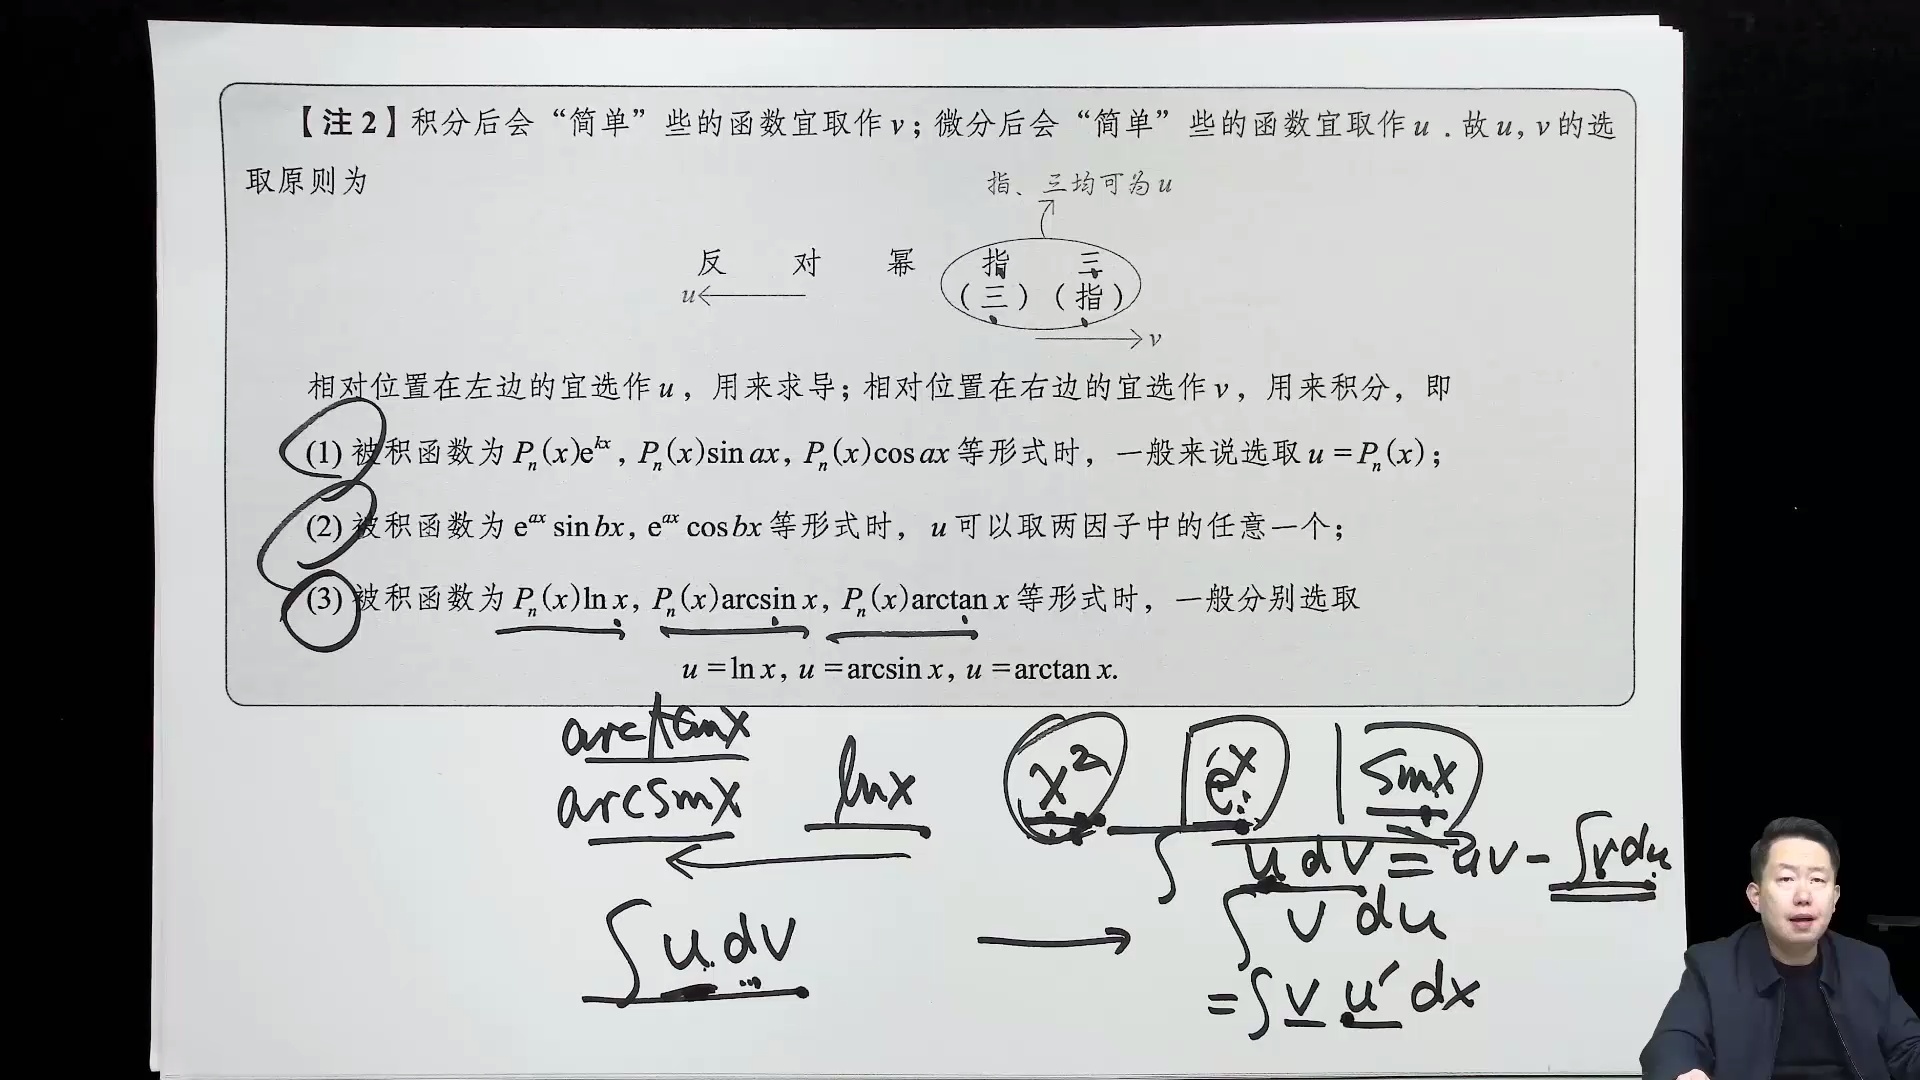 【注2】积分后会“简单”些的函数宜取作v;微分后会“简单”些的函数宜取作u.故u,v的选
取原则为
指、三均可为u
反 对 幂 指 三
u (三)(指)
v
相对位置在左边的宜选作u,用来求导;相对位置在右边的宜选作v,用来积分,即
(1)被积函数为Pₙ(x)eᵏˣ,Pₙ(x)sin ax,Pₙ(x)cos ax等形式时,一般来说选取u=Pₙ(x);
(2)被积函数为eᵃˣ sin bx,eᵃˣ cos bx等形式时,u可以取两因子中的任意一个;
(3)被积函数为Pₙ(x)ln x,Pₙ(x)arcsin x,Pₙ(x)arctan x等形式时,一般分别选取
u=ln x,u=arcsin x,u=arctan x.
arctanx
arcsinx lnx x² eˣ sinx
∫udv=uv-∫vdu
∫udv → ∫vdu
=∫vu′dx